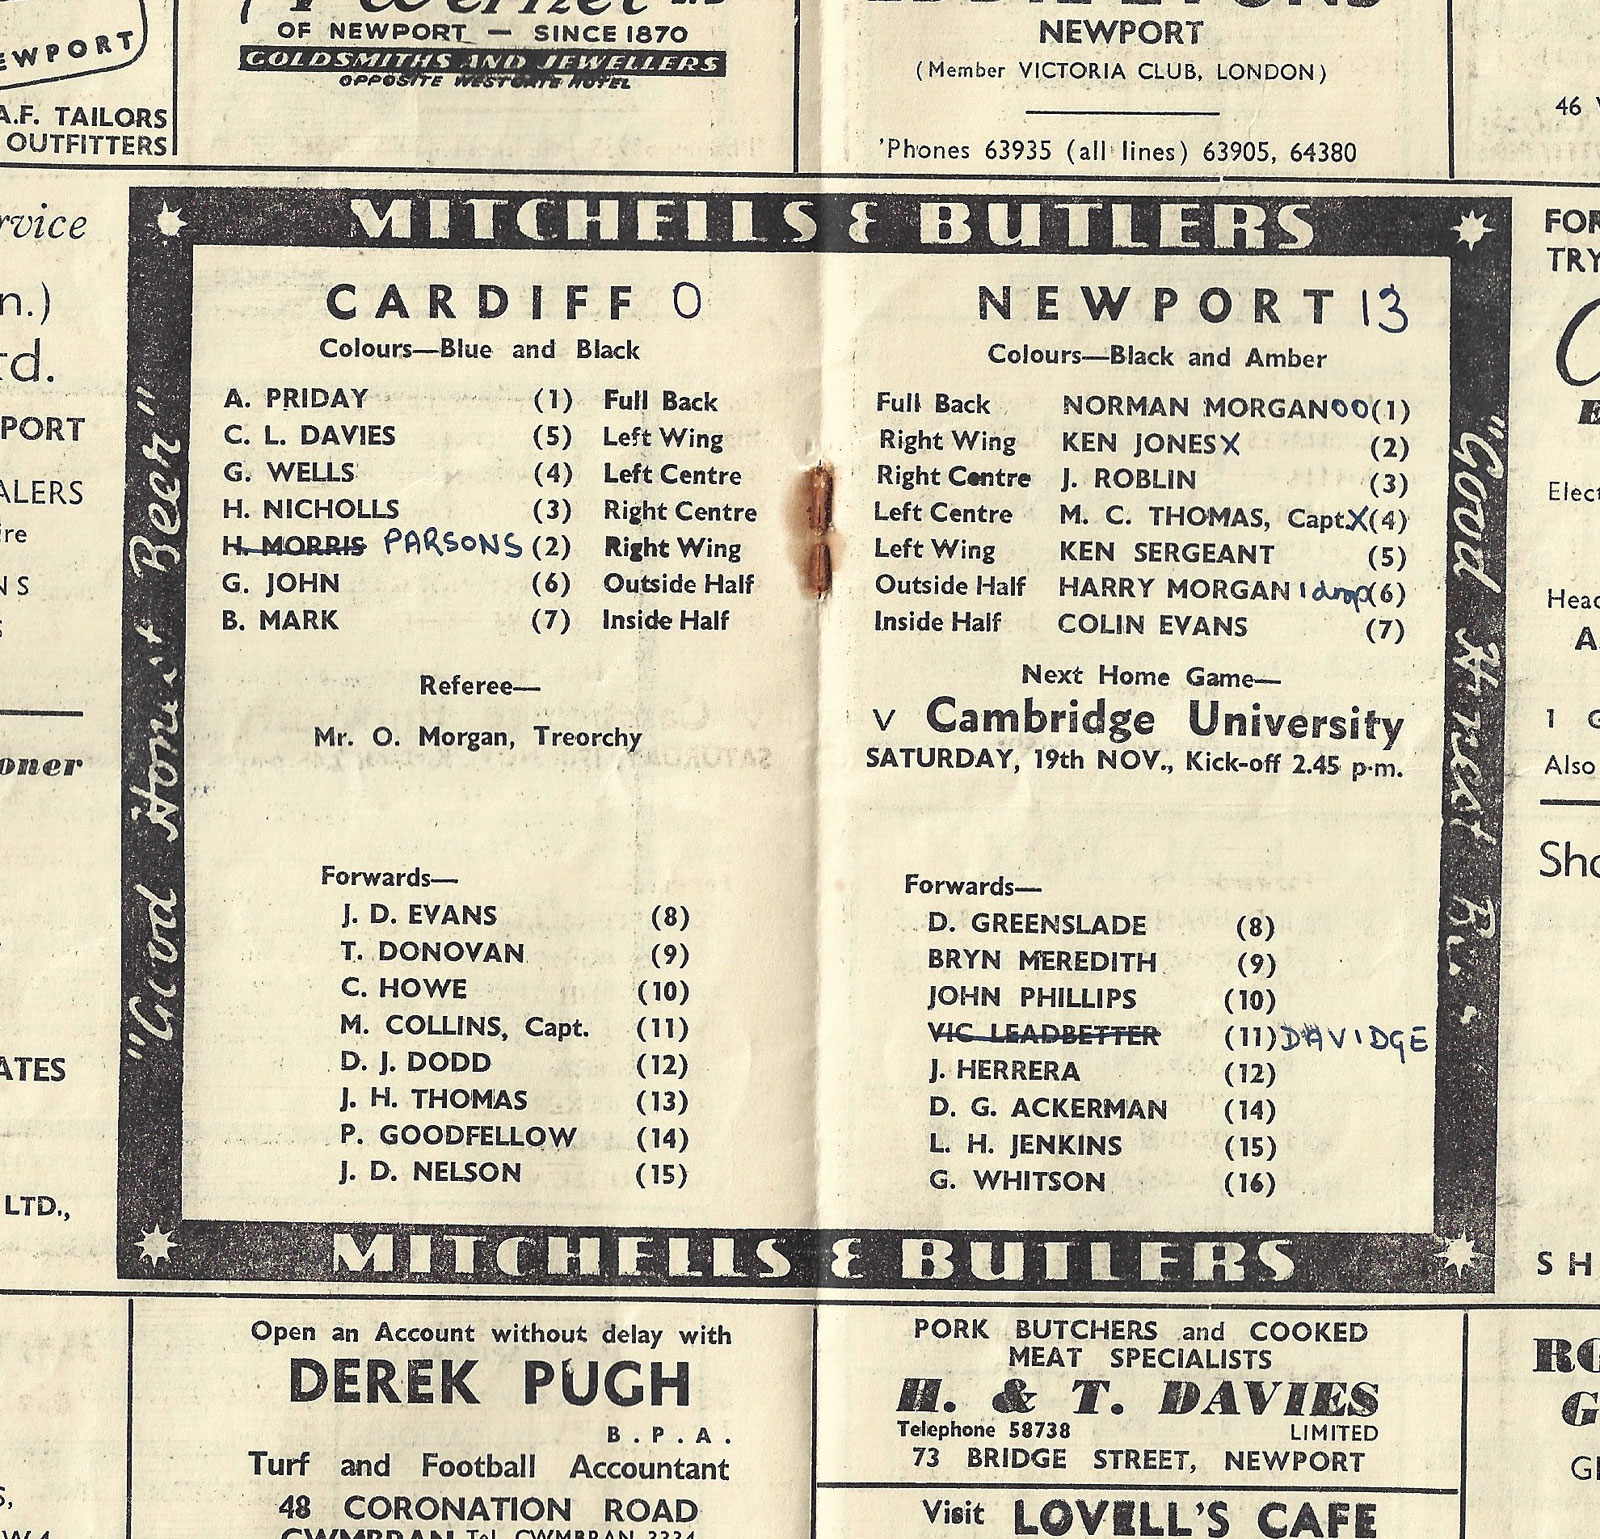 EWPORT
A.F. TAILORS
OUTFITTERS
OF NEWPORT — SINCE 1870
GOLDSMITHS AND JEWELLERS
OPPOSITE WESTGATE HOTEL
NEWPORT
(Member VICTORIA CLUB, LONDON)
'Phones 63935 (all lines) 63905, 64380
46
rvice
n.)
td.
PORT
ALERS
oner
ATES
LTD.,
MITCHELLS & BUTLERS
"Good Honest Beer"
CARDIFF 0
Colours—Blue and Black
A. PRIDAY (1) Full Back
C. L. DAVIES (5) Left Wing
G. WELLS (4) Left Centre
H. NICHOLLS (3) Right Centre
H. MORRIS PARSONS (2) Right Wing
G. JOHN (6) Outside Half
B. MARK (7) Inside Half
Referee—
Mr. O. Morgan, Treorchy
Forwards—
J. D. EVANS (8)
T. DONOVAN (9)
C. HOWE (10)
M. COLLINS, Capt. (11)
D. J. DODD (12)
J. H. THOMAS (13)
P. GOODFELLOW (14)
J. D. NELSON (15)
NEWPORT 13
Colours—Black and Amber
Full Back NORMAN MORGAN OO (1)
Right Wing KEN JONES X (2)
Right Centre J. ROBLIN (3)
Left Centre M. C. THOMAS, Capt. X (4)
Left Wing KEN SERGEANT (5)
Outside Half HARRY MORGAN 1 drop (6)
Inside Half COLIN EVANS (7)
Next Home Game—
v Cambridge University
SATURDAY, 19th NOV., Kick-off 2.45 p.m.
Forwards—
D. GREENSLADE (8)
BRYN MEREDITH (9)
JOHN PHILLIPS (10)
VIC LEADBETTER (11) DAVIDGE
J. HERRERA (12)
D. G. ACKERMAN (14)
L. H. JENKINS (15)
G. WHITSON (16)
"Good Honest
MITCHELLS & BUTLERS
FOR
TRY
Elect
Head
Also
Sho
S H
Open an Account without delay with
DEREK PUGH
B.P.A.
Turf and Football Accountant
48 CORONATION ROAD
CWMBRAN Tel. CWMBRAN 3334
PORK BUTCHERS and COOKED
MEAT SPECIALISTS
H. & T. DAVIES
Telephone 58738 LIMITED
73 BRIDGE STREET, NEWPORT
Visit LOVELL'S CAFE